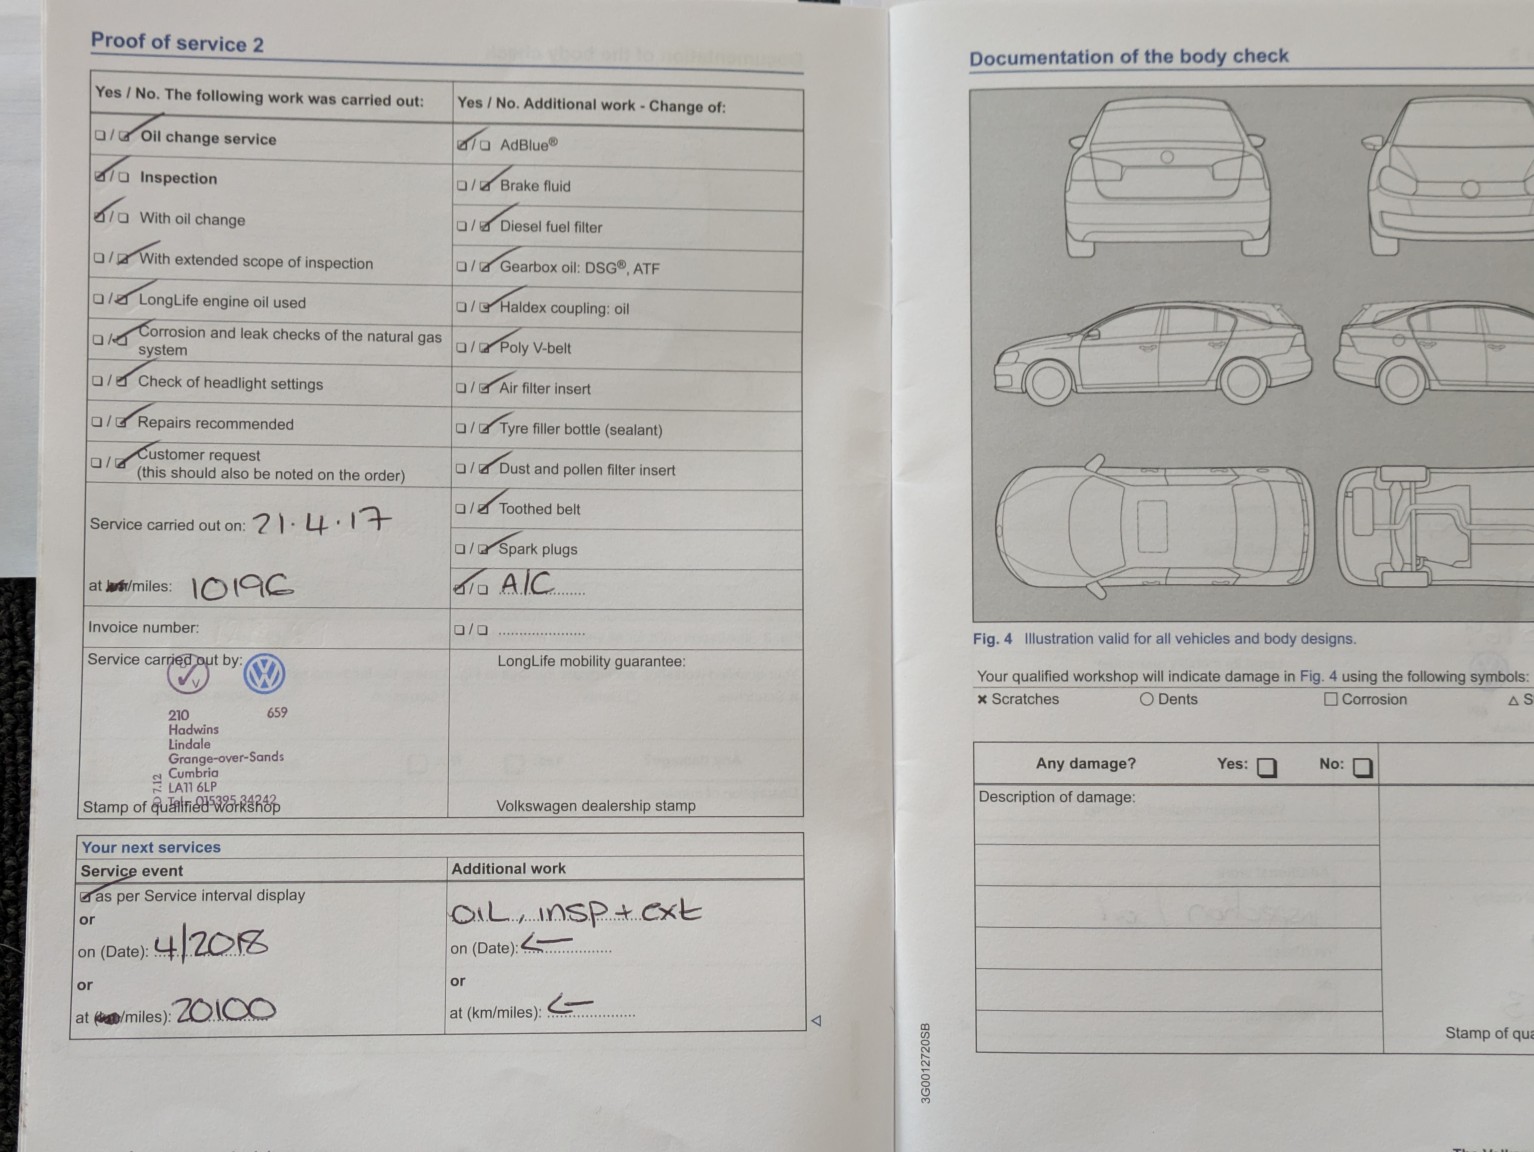 Proof of service 2
Yes / No. The following work was carried out:
☐ / ☑ Oil change service
☑ / ☐ Inspection
☑ / ☐ With oil change
☐ / ☑ With extended scope of inspection
☐ / ☑ LongLife engine oil used
☐ / ☑ Corrosion and leak checks of the natural gas
system
☐ / ☑ Check of headlight settings
☐ / ☑ Repairs recommended
☐ / ☑ Customer request
(this should also be noted on the order)
Service carried out on: 21.4.17
at km/miles: 10196
Invoice number:
Service carried out by:
210 659
Hadwins
Lindale
Grange-over-Sands
Cumbria
LA11 6LP
Tel: 015395 34242
7.12
Stamp of qualified workshop
Yes / No. Additional work - Change of:
☑ / ☐ AdBlue®
☐ / ☑ Brake fluid
☐ / ☑ Diesel fuel filter
☐ / ☑ Gearbox oil: DSG®, ATF
☐ / ☑ Haldex coupling: oil
☐ / ☑ Poly V-belt
☐ / ☑ Air filter insert
☐ / ☑ Tyre filler bottle (sealant)
☐ / ☑ Dust and pollen filter insert
☐ / ☑ Toothed belt
☐ / ☑ Spark plugs
☑ / ☐ A/C
☐ / ☐ ......................
LongLife mobility guarantee:
Volkswagen dealership stamp
Your next services
Service event
☑ as per Service interval display
or
on (Date): 4/2018
or
at (km/miles): 20100
Additional work
OIL, insp + ext
on (Date): ←
or
at (km/miles): ←
Documentation of the body check
Fig. 4 Illustration valid for all vehicles and body designs.
Your qualified workshop will indicate damage in Fig. 4 using the following symbols:
✖ Scratches ○ Dents ☐ Corrosion △ S
Any damage? Yes: ☐ No: ☐
Description of damage:
Stamp of qua
3G0012720SB